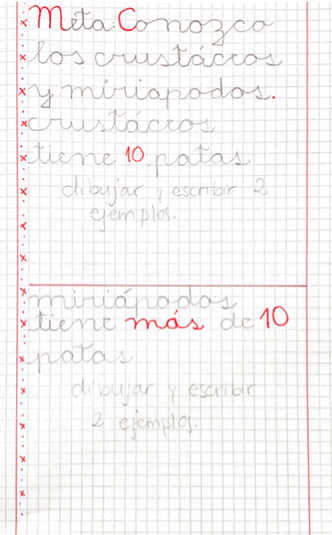 Meta: Conozco
los crustáceos
y miriapodos.
crustáceos
tiene 10 patas
dibujar y escribir 2
ejemplos.
miriápodos
tiene más de 10
patas
dibujar y escribir
2 ejemplos.